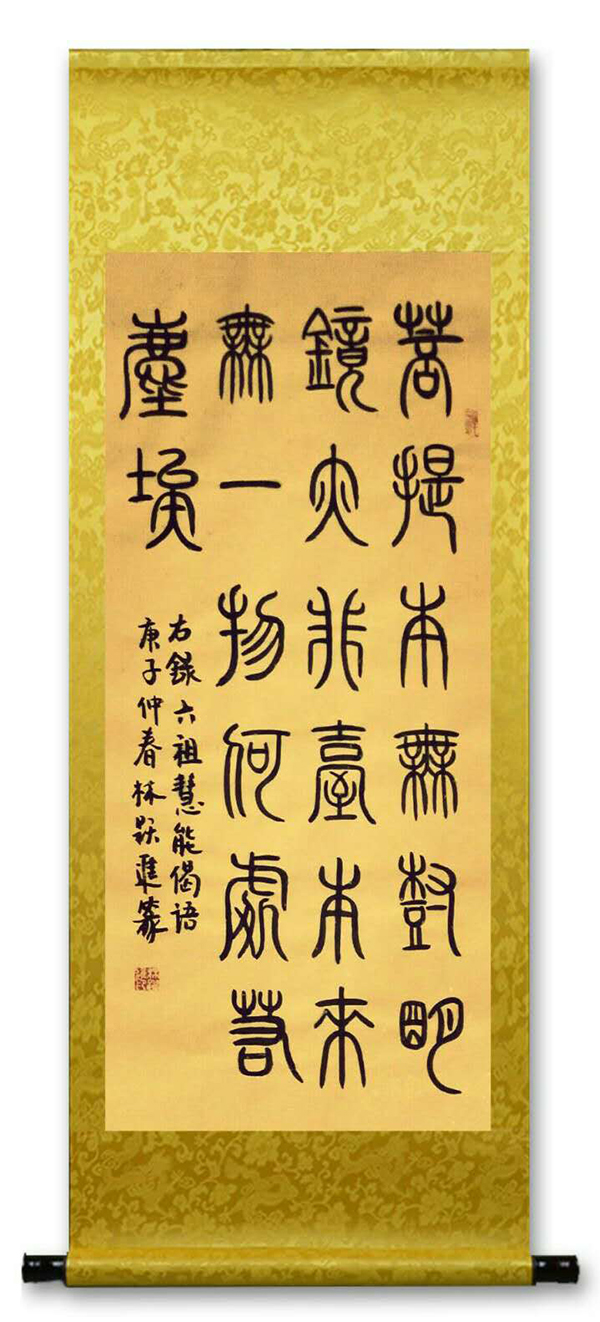 菩提本無樹明
鏡亦非臺本來
無一物何處若
塵埃
右錄六祖慧能偈語
庚子仲春林跃進篆